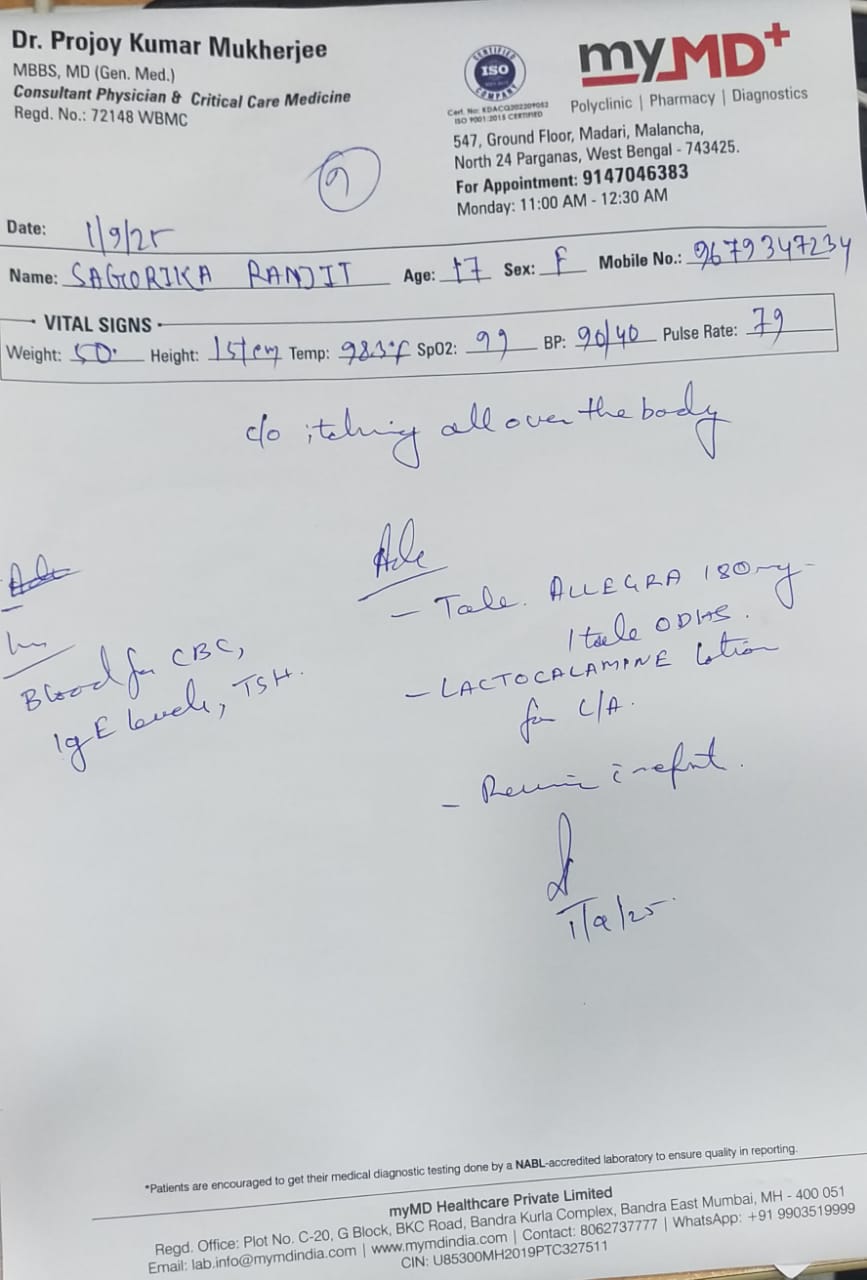 Dr. Projoy Kumar Mukherjee
MBBS, MD (Gen. Med.)
Consultant Physician & Critical Care Medicine
Regd. No.: 72148 WBMC
CERTIFIED
ISO
COMPANY
Cert. No: KDACQ202209062
ISO 9001:2015 CERTIFIED
myMD+
Polyclinic | Pharmacy | Diagnostics
547, Ground Floor, Madari, Malancha,
North 24 Parganas, West Bengal - 743425.
For Appointment: 9147046383
Monday: 11:00 AM - 12:30 AM
Date: 1/9/25
Name: SAGORIKA RANJIT Age: 17 Sex: F Mobile No.: 9679347234
VITAL SIGNS
Weight: 50 Height: 151cm Temp: 98.3°f SpO2: 99 BP: 90/40 Pulse Rate: 79
c/o itching all over the body
Adv
Blood for CBC,
IgE levels, TSH.
Adv
- Tab. ALLEGRA 180mg
1 tab ODHS.
- LACTOCALAMINE lotion
for L/A.
- Review c report.
1/9/25
*Patients are encouraged to get their medical diagnostic testing done by a NABL-accredited laboratory to ensure quality in reporting.
myMD Healthcare Private Limited
Regd. Office: Plot No. C-20, G Block, BKC Road, Bandra Kurla Complex, Bandra East Mumbai, MH - 400 051
Email: lab.info@mymdindia.com | www.mymdindia.com | Contact: 8062737777 | WhatsApp: +91 9903519999
CIN: U85300MH2019PTC327511